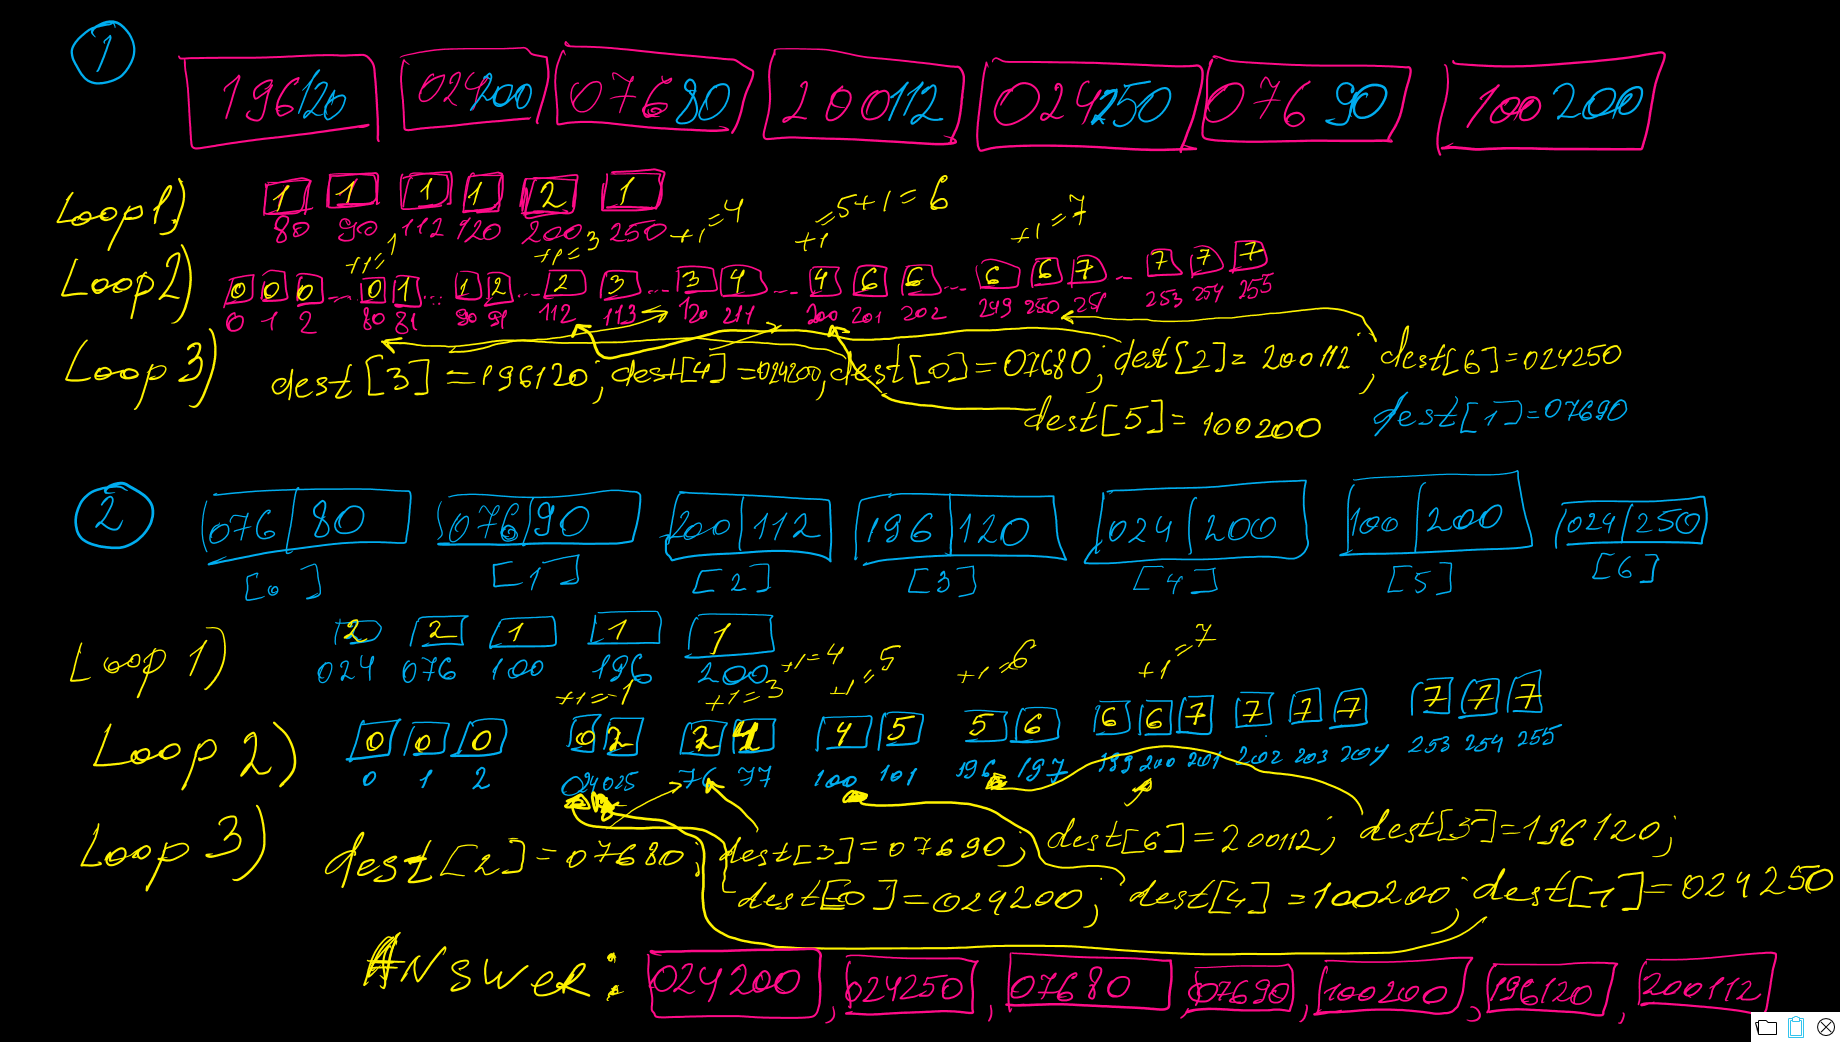 1
196120 024200 07680 200112 024250 07690 100200
Loop1) 1 1 1 1 2 1
80 90 112 120 200 250
+1=1 +1=3 +1=4 +1=5+1=6 +1=7
Loop2) 0 0 0 ... 0 1 ... 1 2 ... 2 3 ... 3 4 ... 4 6 6 ... 6 6 7 ... 7 7 7
0 1 2 80 81 90 91 112 113 120 211 200 201 202 249 250 251 253 254 255
Loop 3) dest[3]=196120; dest[4]=024200, dest[0]=07680; dest[2]=200112; dest[6]=024250
dest[5]=100200 dest[1]=07690
2
076|80 076|90 200|112 196|120 024|200 100|200 024|250
[0] [1] [2] [3] [4] [5] [6]
Loop 1) 2 2 1 1 1
024 076 100 196 200
+1=1 +1=3 +1=4 +1=5 +1=6 +1=7
Loop 2) 0 0 0 0 2 2 4 4 5 5 6 6 6 7 7 7 7 7 7 7
0 1 2 024 025 76 77 100 101 196 197 199 200 201 202 203 204 253 254 255
Loop 3) dest[2]=07680; dest[3]=07690; dest[6]=200112; dest[5]=196120;
dest[0]=024200; dest[4]=100200; dest[1]=024250
Answer: 024200, 024250, 07680, 07690, 100200, 196120, 200112